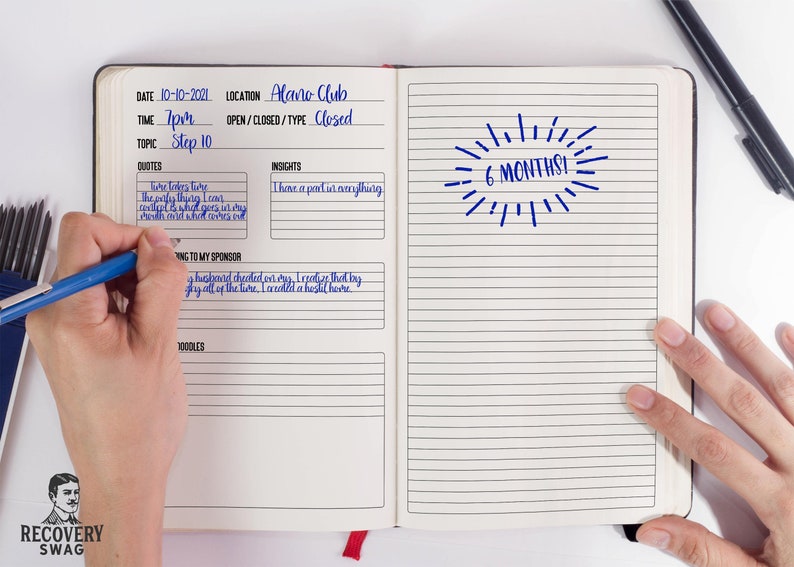 DATE 10-10-2021 LOCATION Alano Club
TIME 7pm OPEN / CLOSED / TYPE Closed
TOPIC Step 10
QUOTES
Time takes time
The only thing I can
control is what goes in my
mouth and what comes out.
INSIGHTS
I have a part in everything
ING TO MY SPONSOR
y husband cheated on my. I realize that by
gry all of the time, I created a hostil home.
DOODLES
6 MONTHS!
RECOVERY
SWAG